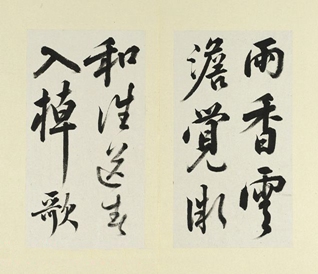 雨香雲
澹覺微
和誰送春
入棹歌